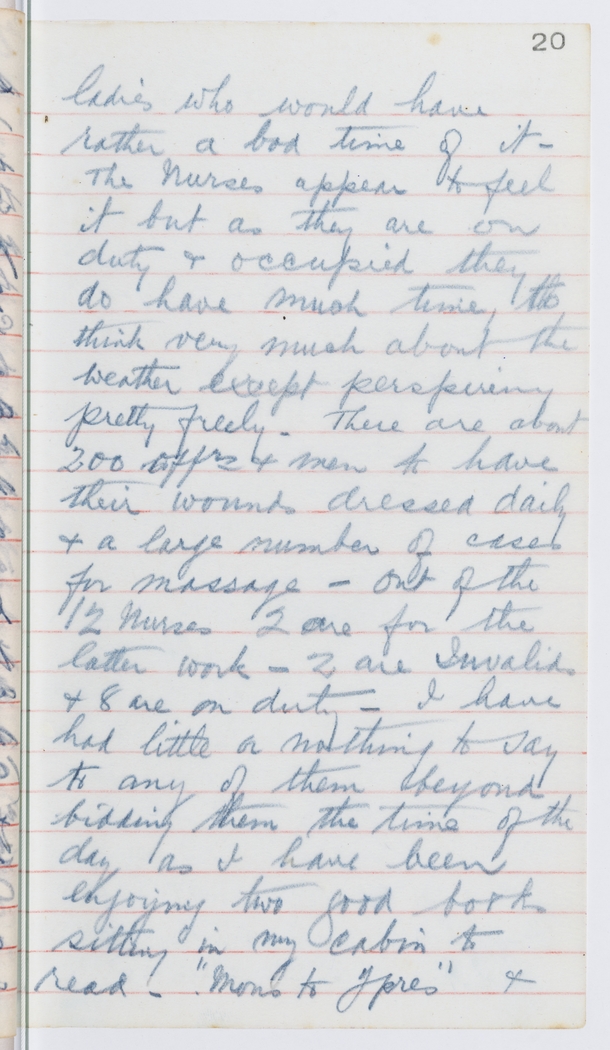 20
ladies who would have
rather a bad time of it -
The Nurses appear to feel
it but as they are on
duty & occupied they
do have much time, to
think very much about the
weather except perspiring
pretty freely. There are about
200 offrs & men to have
their wounds dressed daily
& a large number of cases
for massage - out of the
12 Nurses 2 are for the
latter work - 2 are Invalids
& 8 are on duty - I have
had little or nothing to say
to any of them beyond
bidding them the time of the
day as I have been
enjoying two good books
sitting in my cabin to
read - "Mons to Ypres" &